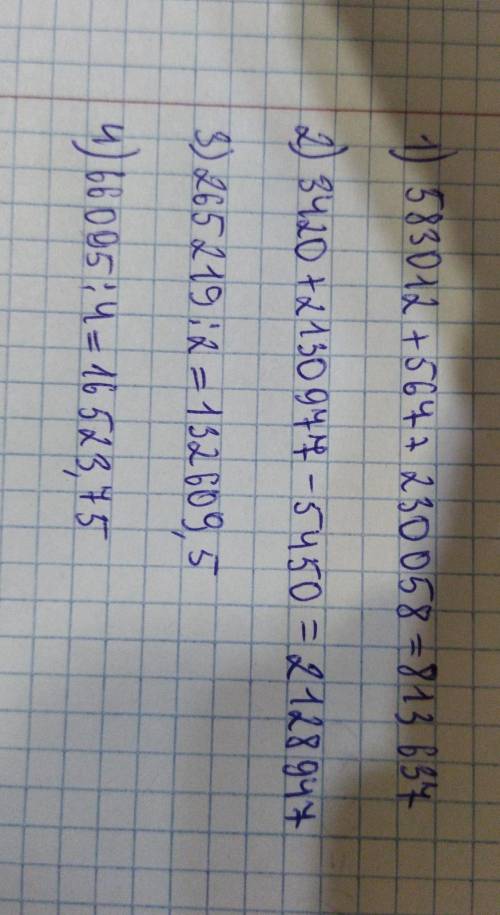 1) 583012 + 567 + 230058 = 813637
2) 3420 + 2130977 - 5450 = 2128947
3) 265219 : 2 = 132609,5
4) 66095 : 4 = 16523,75